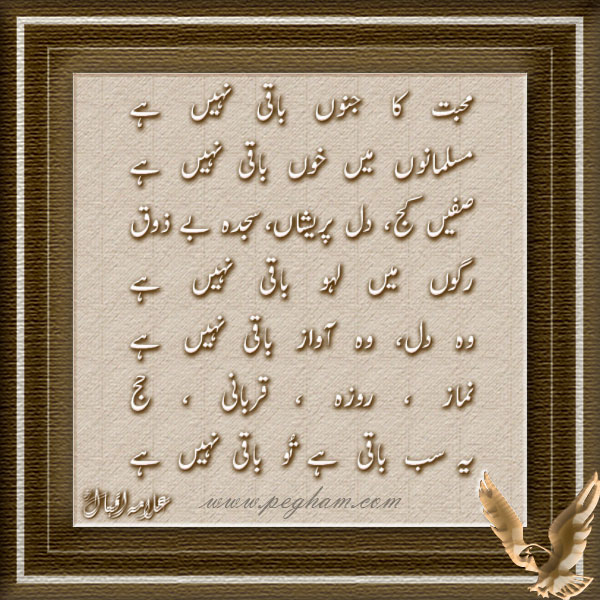 محبت کا جنوں باقی نہیں ہے
مسلمانوں میں خوں باقی نہیں ہے
صفیں کج، دل پریشاں، سجدہ بے ذوق
رگوں میں لہو باقی نہیں ہے
وہ دل، وہ آواز باقی نہیں ہے
نماز ، روزہ ، قربانی ، حج
یہ سب باقی ہے تُو باقی نہیں ہے
علامہ اقبال
www.pegham.com